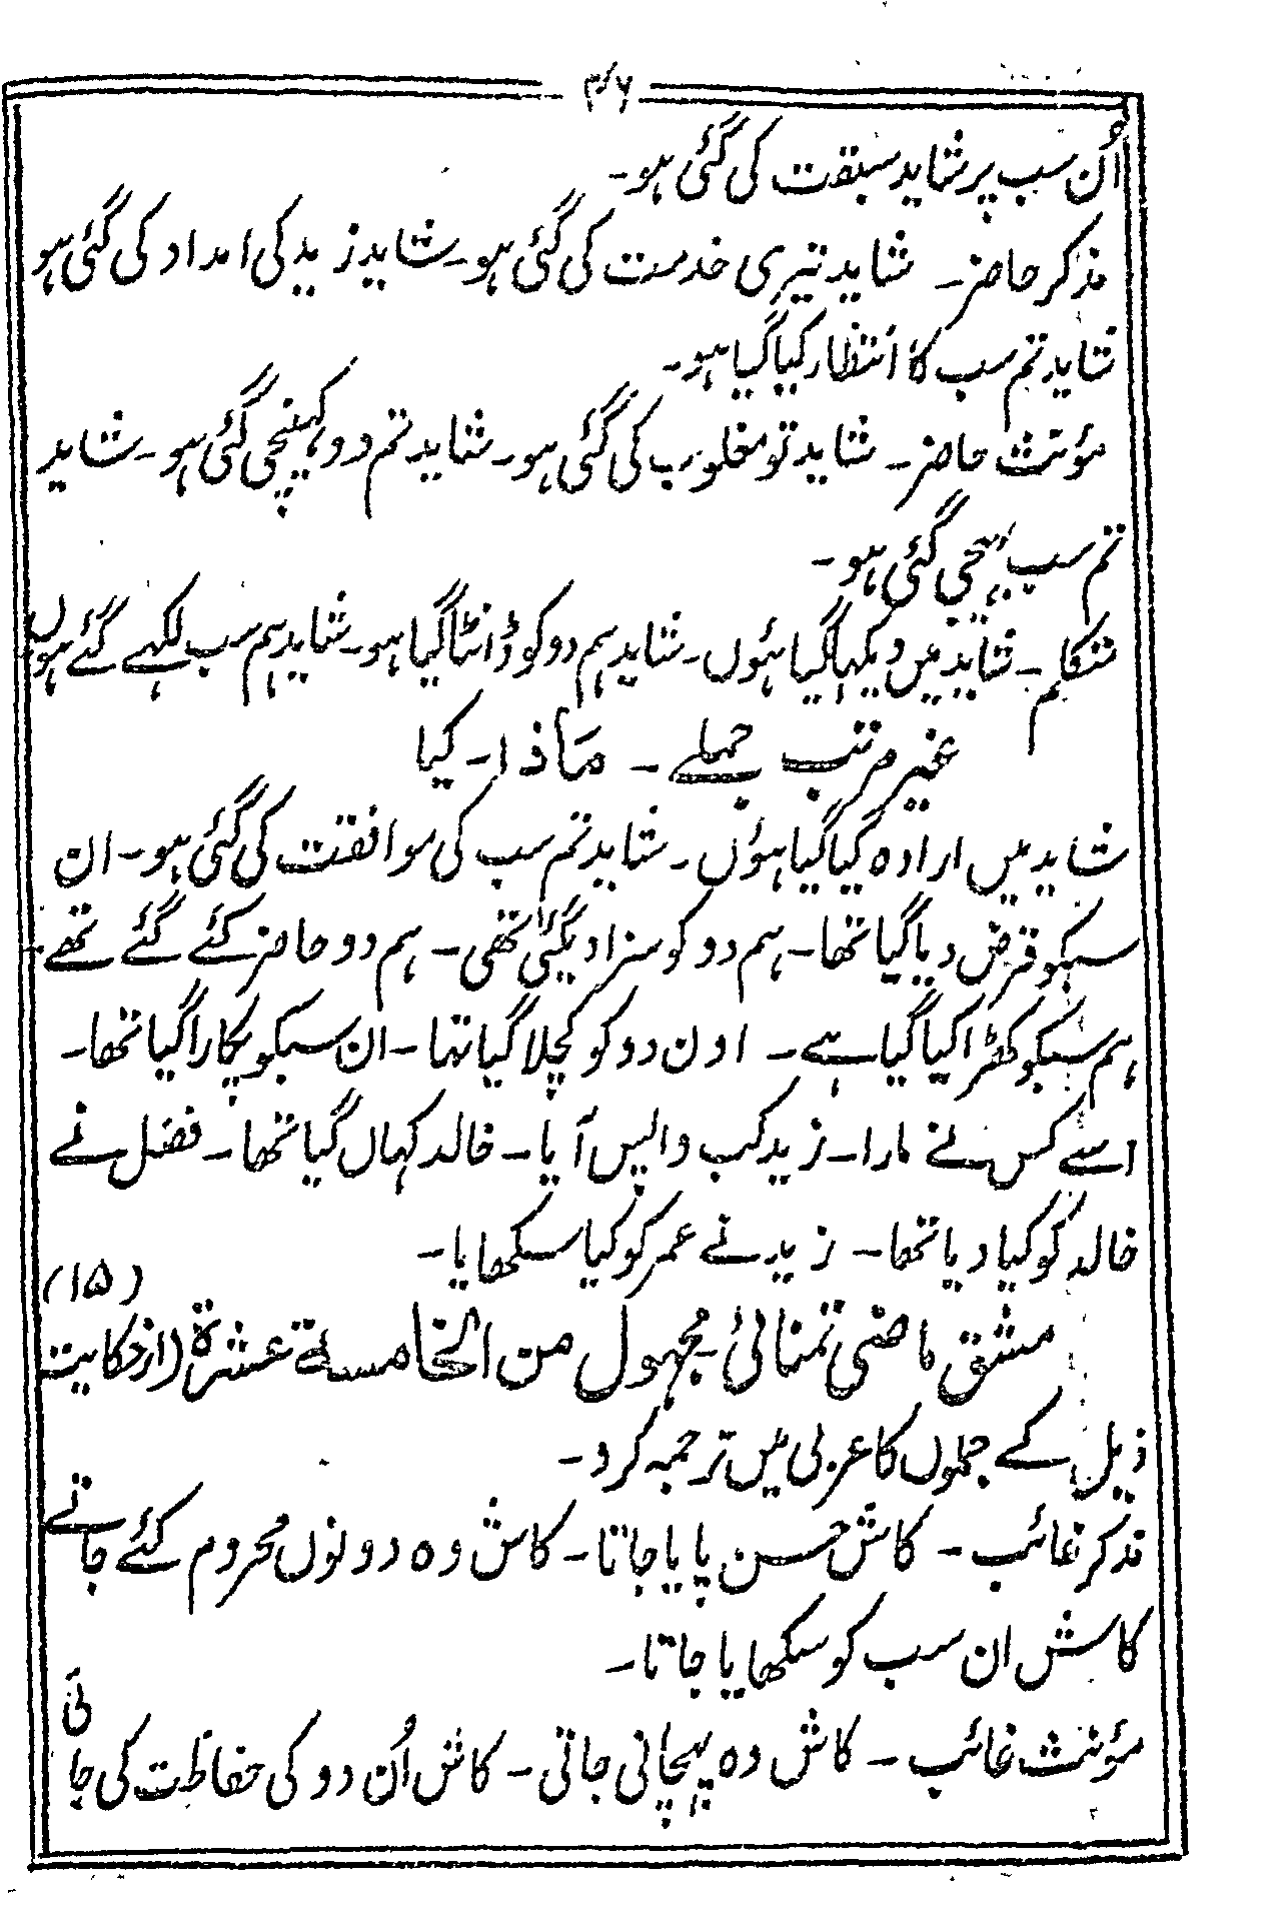 ۴۶
اُن سب پر شاید سبقت کی گئی ہو۔
مذکر حاضر۔ شاید تیری خدمت کی گئی ہو۔ شاید زید کی امداد کی گئی ہو
شاید تم سب کا انتظار کیا گیا ہو۔
مؤنث حاضر۔ شاید تو مغلوب کی گئی ہو۔ شاید تم دو کھینچی گئی ہو۔ شاید
تم سب بھیجی گئی ہو۔
متکلم۔ شاید میں دیکھا گیا ہوں۔ شاید ہم دو کو ڈانٹا گیا ہو۔ شاید ہم سب لکہے گئے ہوں
غیر مرتب جملے۔ مَاذَا۔ کیا
شاید میں ارادہ کیا گیا ہوں۔ شاید تم سب کی موافقت کی گئی ہو۔ ان
سبکو قرض دیا گیا تھا۔ ہم دو کو سزا دیگئی تھی۔ ہم دو حاضر کئے گئے تھے۔
ہم سبکو کھڑا کیا گیا ہے۔ اون دو کو کچلا گیا تہا۔ ان سبکو پکارا گیا تھا۔
اسے کس نے مارا۔ زید کب واپس آیا۔ خالد کہاں گیا تھا۔ فضل نے
خالد کو کیا دیا تھا۔ زید نے عمر کو کیا سکھایا۔
(۱۵)
مشق ماضی تمنائی۔ مجہول من الخامسة عشرة (از حکایت
ذیل کے جملوں کا عربی میں ترجمہ کرو۔
مذکر غائب۔ کاش حسن پایا جاتا۔ کاش وہ دونوں محروم کئے جاتے
کاش ان سب کو سکھایا جاتا۔
مؤنث غائب۔ کاش وہ پہچانی جاتی۔ کاش اُن دو کی حفاظت کی جاتی